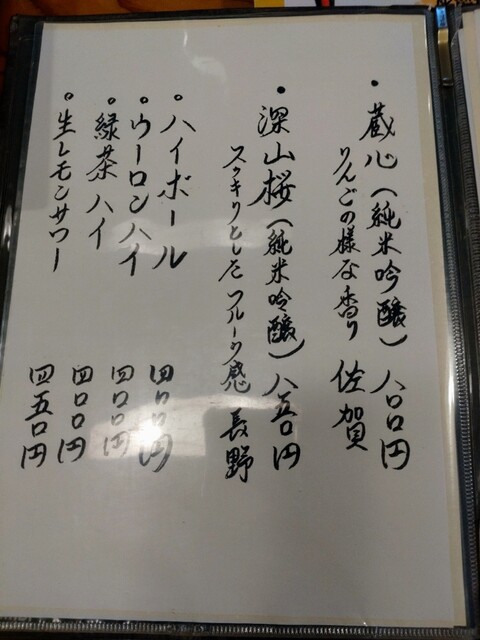 ・蔵心（純米吟醸）八〇〇円
りんごの様な香り 佐賀
・深山桜（純米吟醸）八五〇円
スッキリとしたフルーツ感 長野
・ハイボール 四〇〇円
・ウーロンハイ 四〇〇円
・緑茶ハイ 四〇〇円
・生レモンサワー 四五〇円